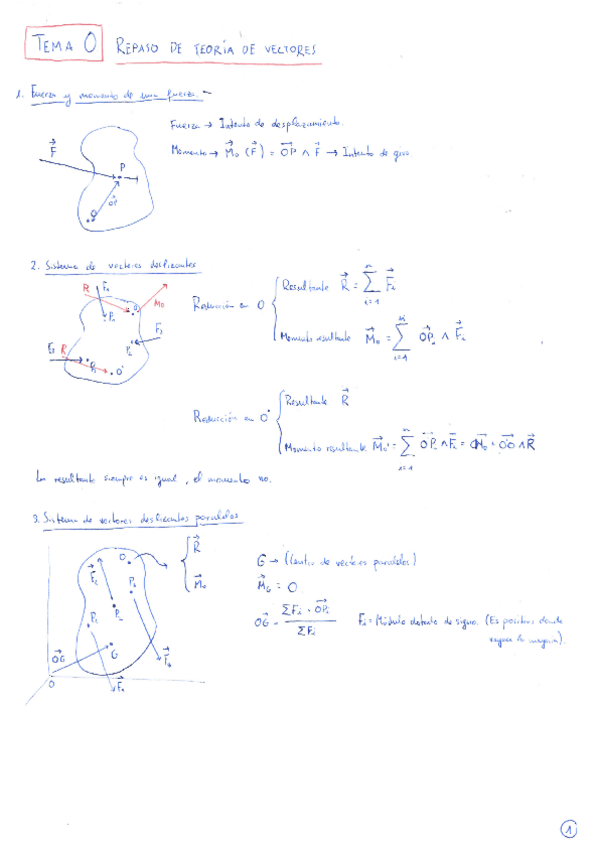 TEMA 0 REPASO DE TEORÍA DE VECTORES
1. Fuerza y momento de una fuerza.-
Fuerza → Intento de desplazamiento.
Momento → M⃗o (F⃗) = OP⃗ ∧ F⃗ → Intento de giro
F⃗
P
OP⃗
O
2. Sistema de vectores deslizantes
Reducción en O
Resultante R⃗ = Σ F⃗i
i=1
Momento resultante M⃗o = Σ OP⃗i ∧ F⃗i
i=1
R
Mo
O
R
O'
Reducción en O'
Resultante R⃗
Momento resultante
La resultante siempre es igual, el momento no.
3. Sistema de vectores deslizantes paralelos
R⃗
M⃗o
G → (Centro de vectores paralelos)
M⃗G = 0
OG⃗ = ΣFi · OP⃗i / ΣFi
Fi = Módulo dotado de signo. (Es positivo donde
O
G
OG⃗
O
1